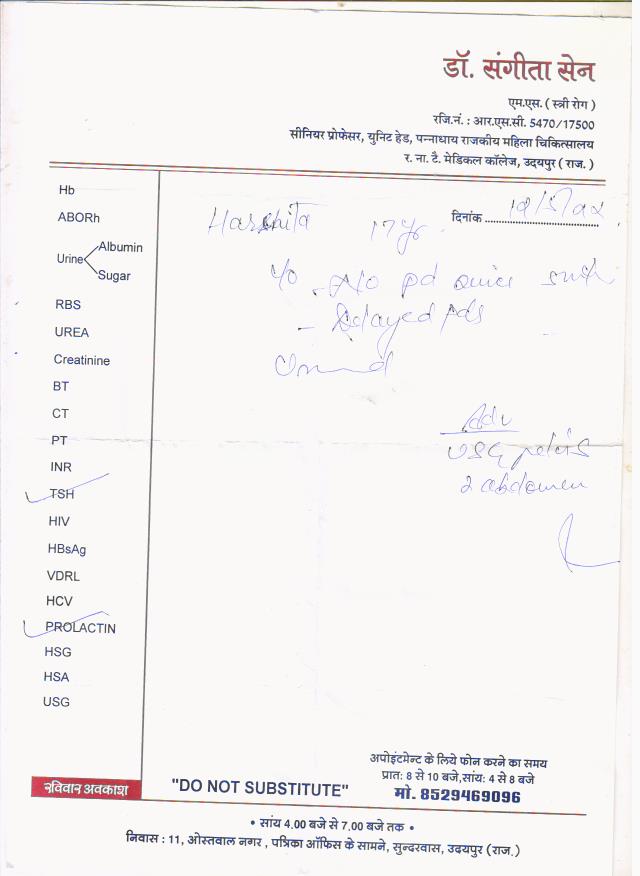 डॉ. संगीता सेन
एम.एस. ( स्त्री रोग )
रजि.नं. : आर.एस.सी. 5470/17500
सीनियर प्रोफेसर, युनिट हेड, पन्नाधाय राजकीय महिला चिकित्सालय
र. ना. टै. मेडिकल कॉलेज, उदयपुर ( राज. )
Hb
ABORh
Urine
Albumin
Sugar
RBS
UREA
Creatinine
BT
CT
PT
INR
TSH
HIV
HBsAg
VDRL
HCV
PROLACTIN
HSG
HSA
USG
दिनांक
Harshita 17 yr
No pd
- Delayed pds
Adv
USG pelvis
& abdomen
रविवार अवकाश
"DO NOT SUBSTITUTE"
अपोइंटमेण्ट के लिये फोन करने का समय
प्रात: 8 से 10 बजे,सांय: 4 से 8 बजे
मो. 8529469096
• सांय 4.00 बजे से 7.00 बजे तक •
निवास : 11, ओस्तवाल नगर , पत्रिका ऑफिस के सामने, सुन्दरवास, उदयपुर (राज.)